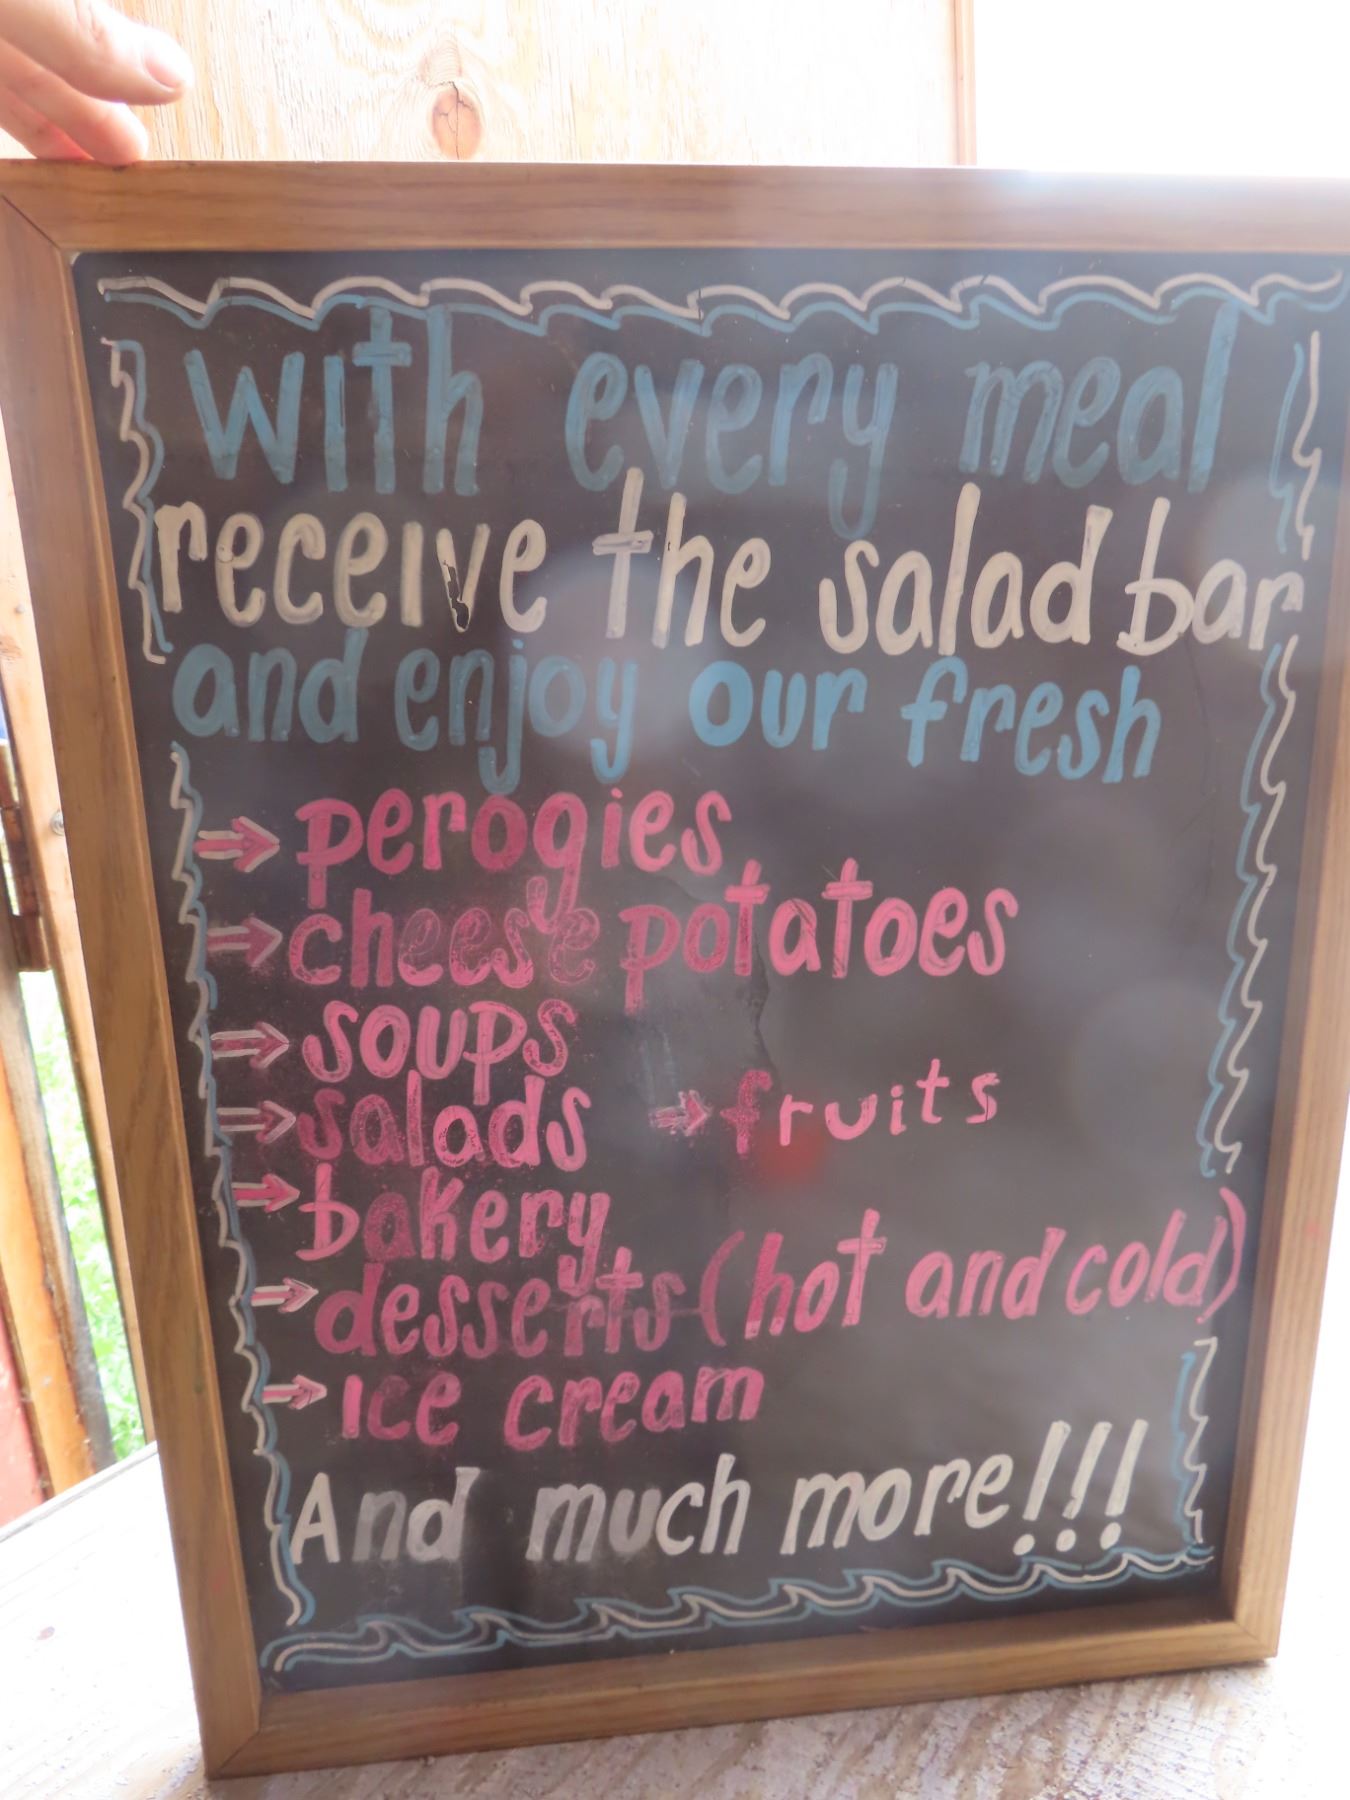 with every meal
receive the salad bar
and enjoy our fresh
→ perogies
→ cheese potatoes
→ soups
→ salads → fruits
→ bakery
→ desserts (hot and cold)
→ ice cream
And much more!!!